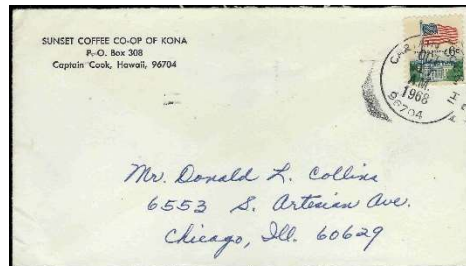 SUNSET COFFEE CO-OP OF KONA
P. O. Box 308
Captain Cook, Hawaii, 96704
6c
1968
96704
Mr. Donald L. Collins
6553 S. Artesian Ave.
Chicago, Ill. 60629